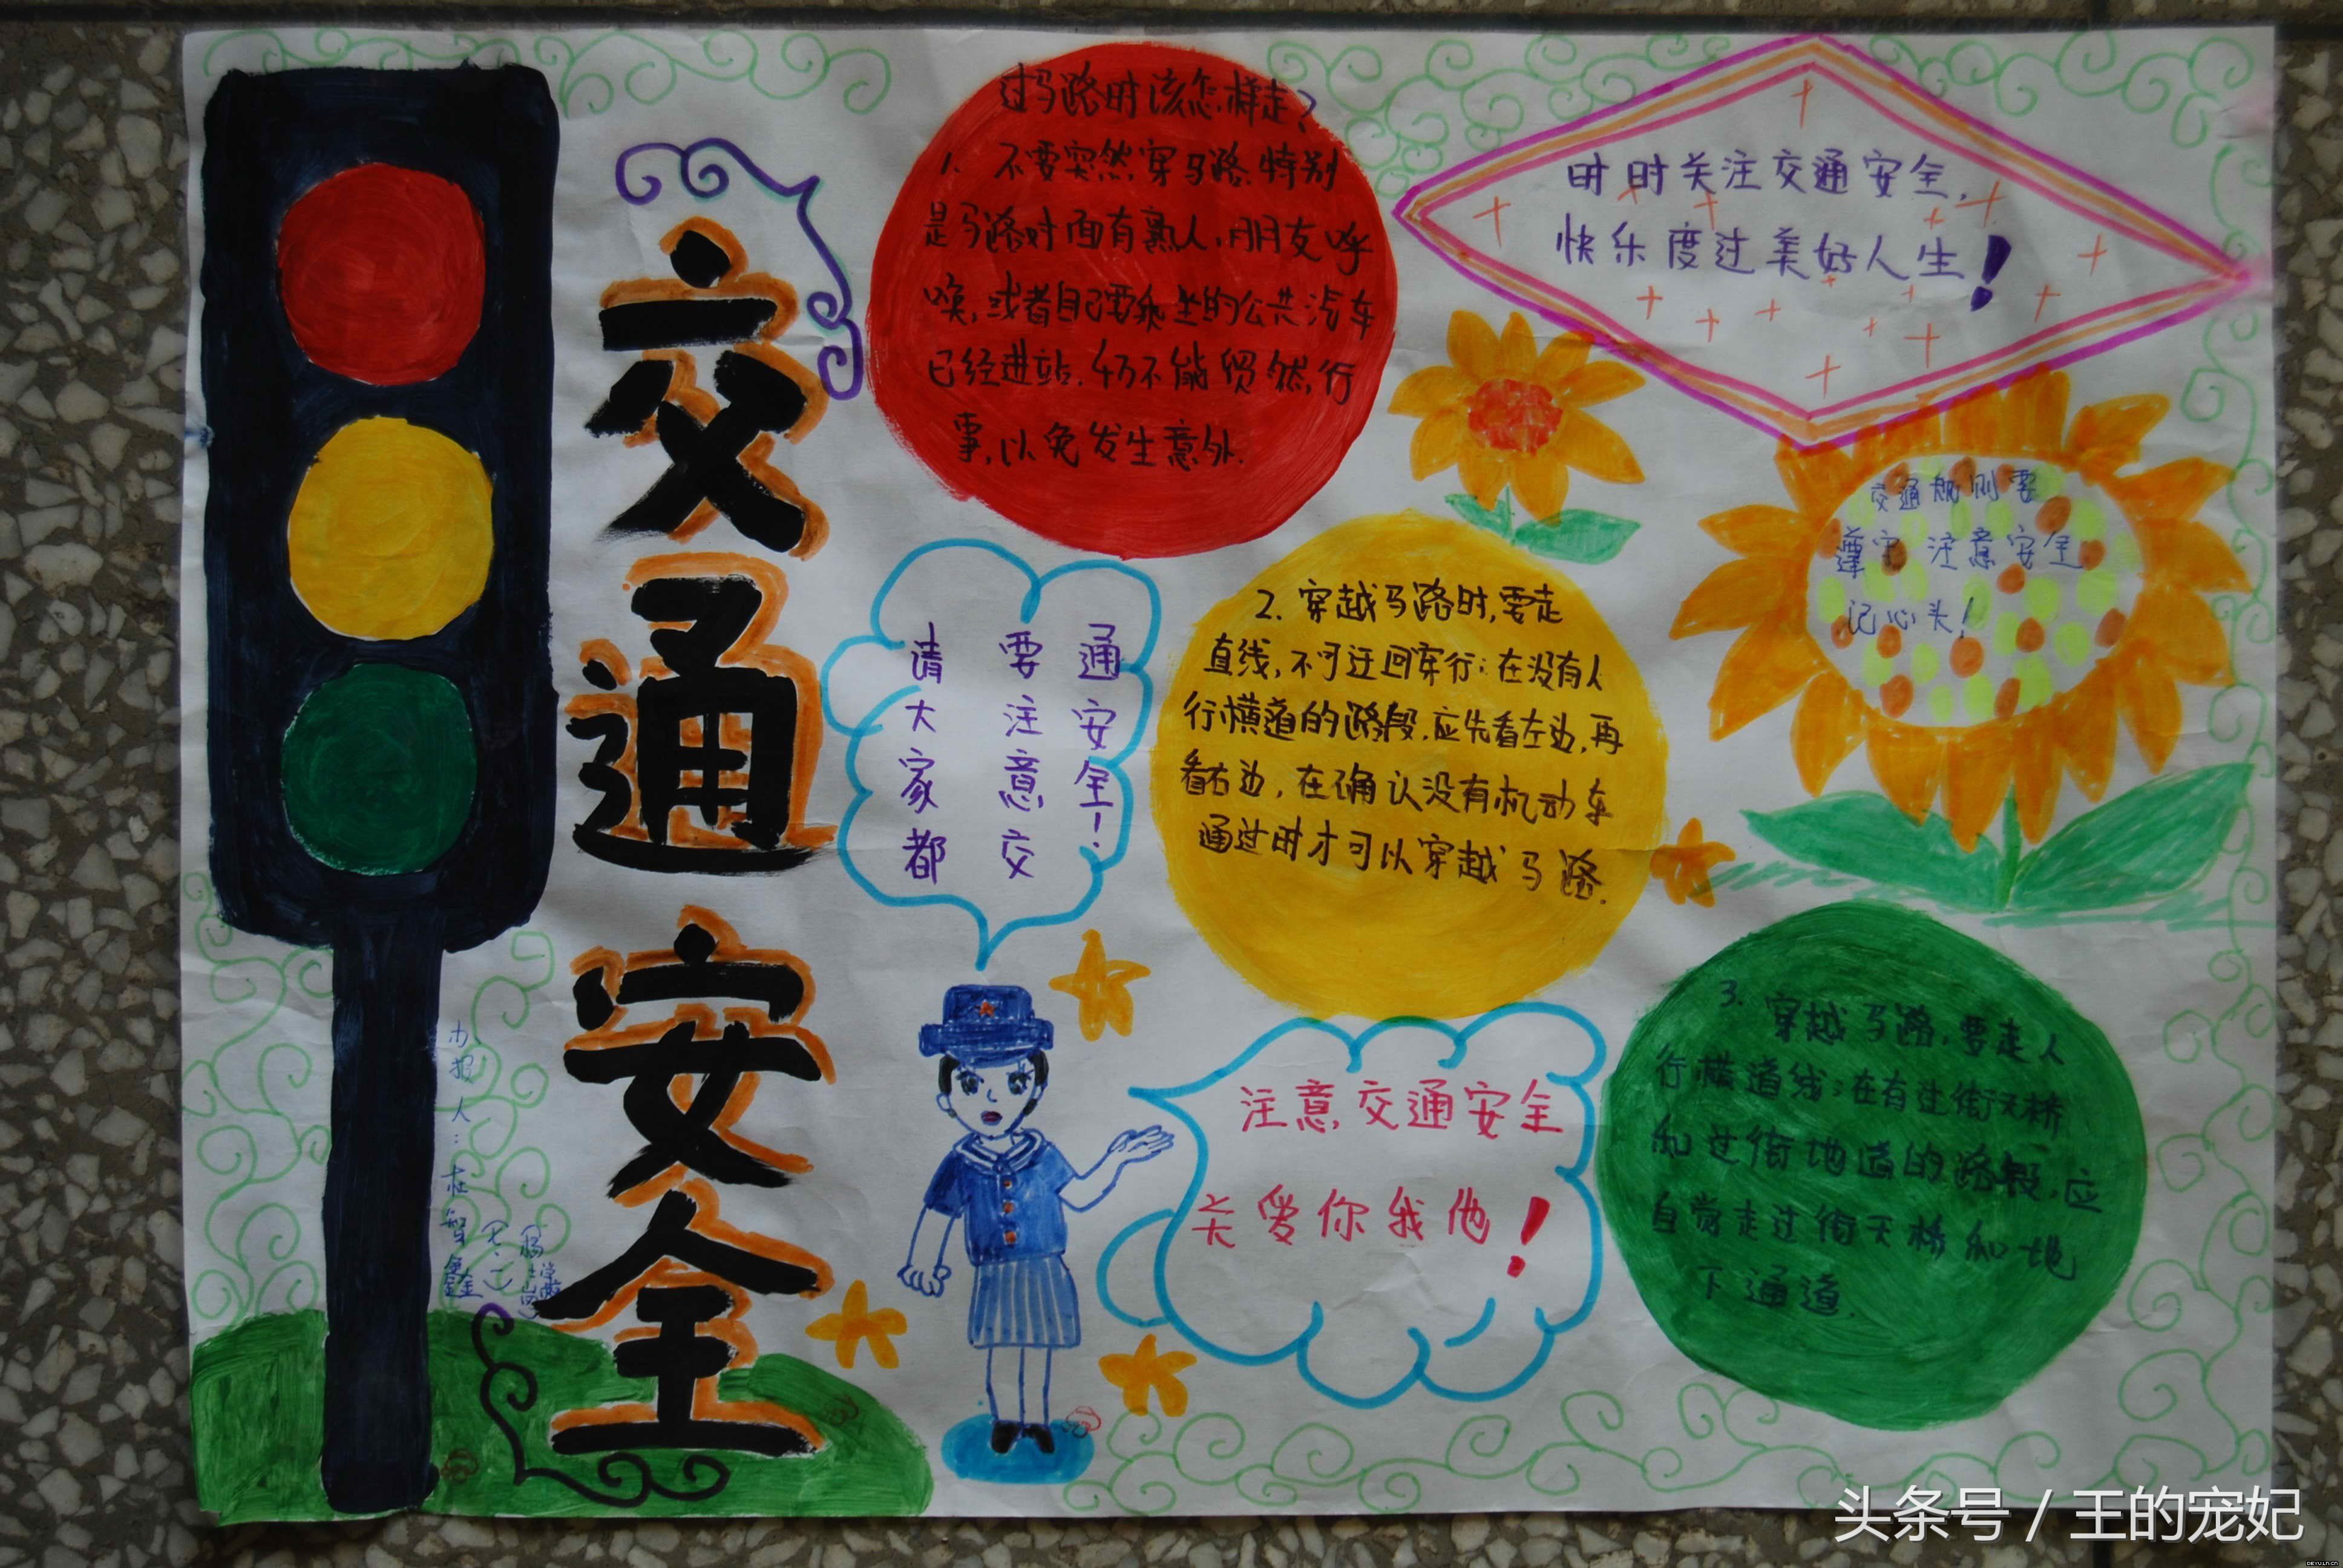 交通安全
过马路时该怎样走?
1. 不要突然穿马路.特别
是马路对面有熟人,朋友呼
唤,或者自己要乘坐的公共汽车
已经进站,仍不能贸然行
事,以免发生意外.
时时关注交通安全,
快乐度过美好人生!
交通规则要
遵守 注意安全
记心头!
请大家都
要注意交
通安全!
2. 穿越马路时,要走
直线,不可迂回穿行;在没有人
行横道的路段,应先看左边,再
看右边,在确认没有机动车
通过时才可以穿越马路.
注意交通安全
关爱你我他!
3. 穿越马路,要走人
行横道线;在有过街天桥
和过街地道的路段,应
自觉走过街天桥和地
下通道.
办报人:杜智鑫
头条号 / 王的宠妃